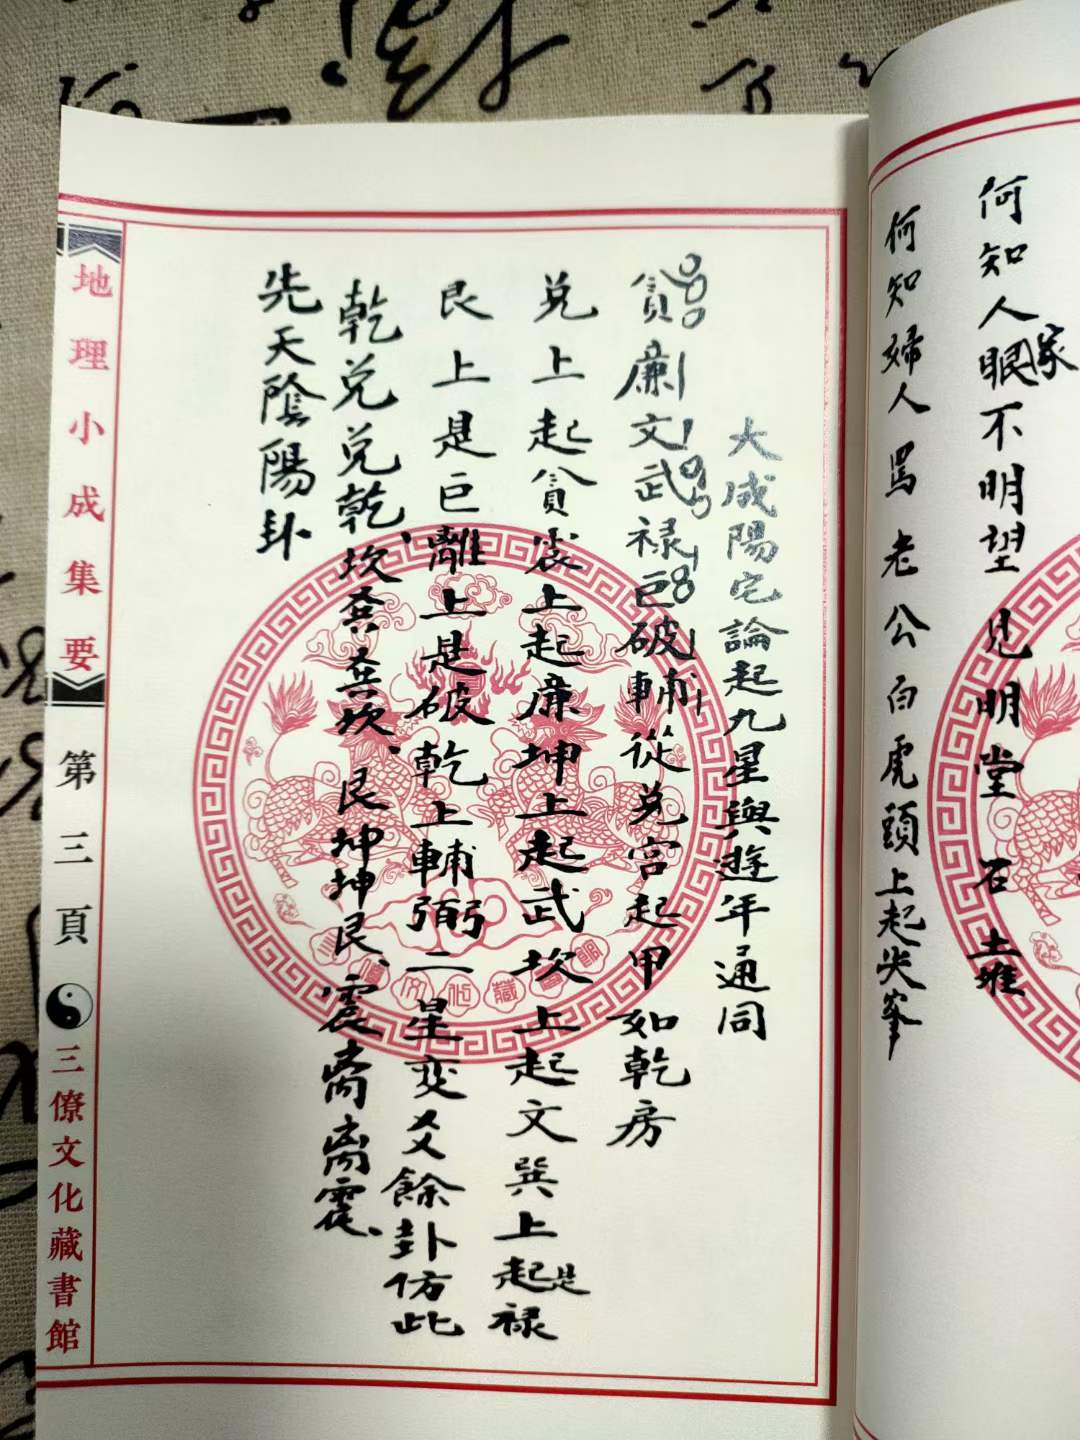 何知人眼不明望見明堂石土堆
家
何知婦人罵老公白虎頭上起尖峯
大成陽宅論起九星與遊年通同
貪廉文武祿巨破輔從兌宮起甲如乾房
兌上起貪震上起廉坤上起武坎上起文巽上起祿
是
艮上是巨離上是破乾上輔弼二星变爻餘卦仿此
乾兌兌乾、坎巽巽坎、艮坤坤艮、震离离震、
先天陰陽卦
地理小成集要
第三頁
三僚文化藏書館